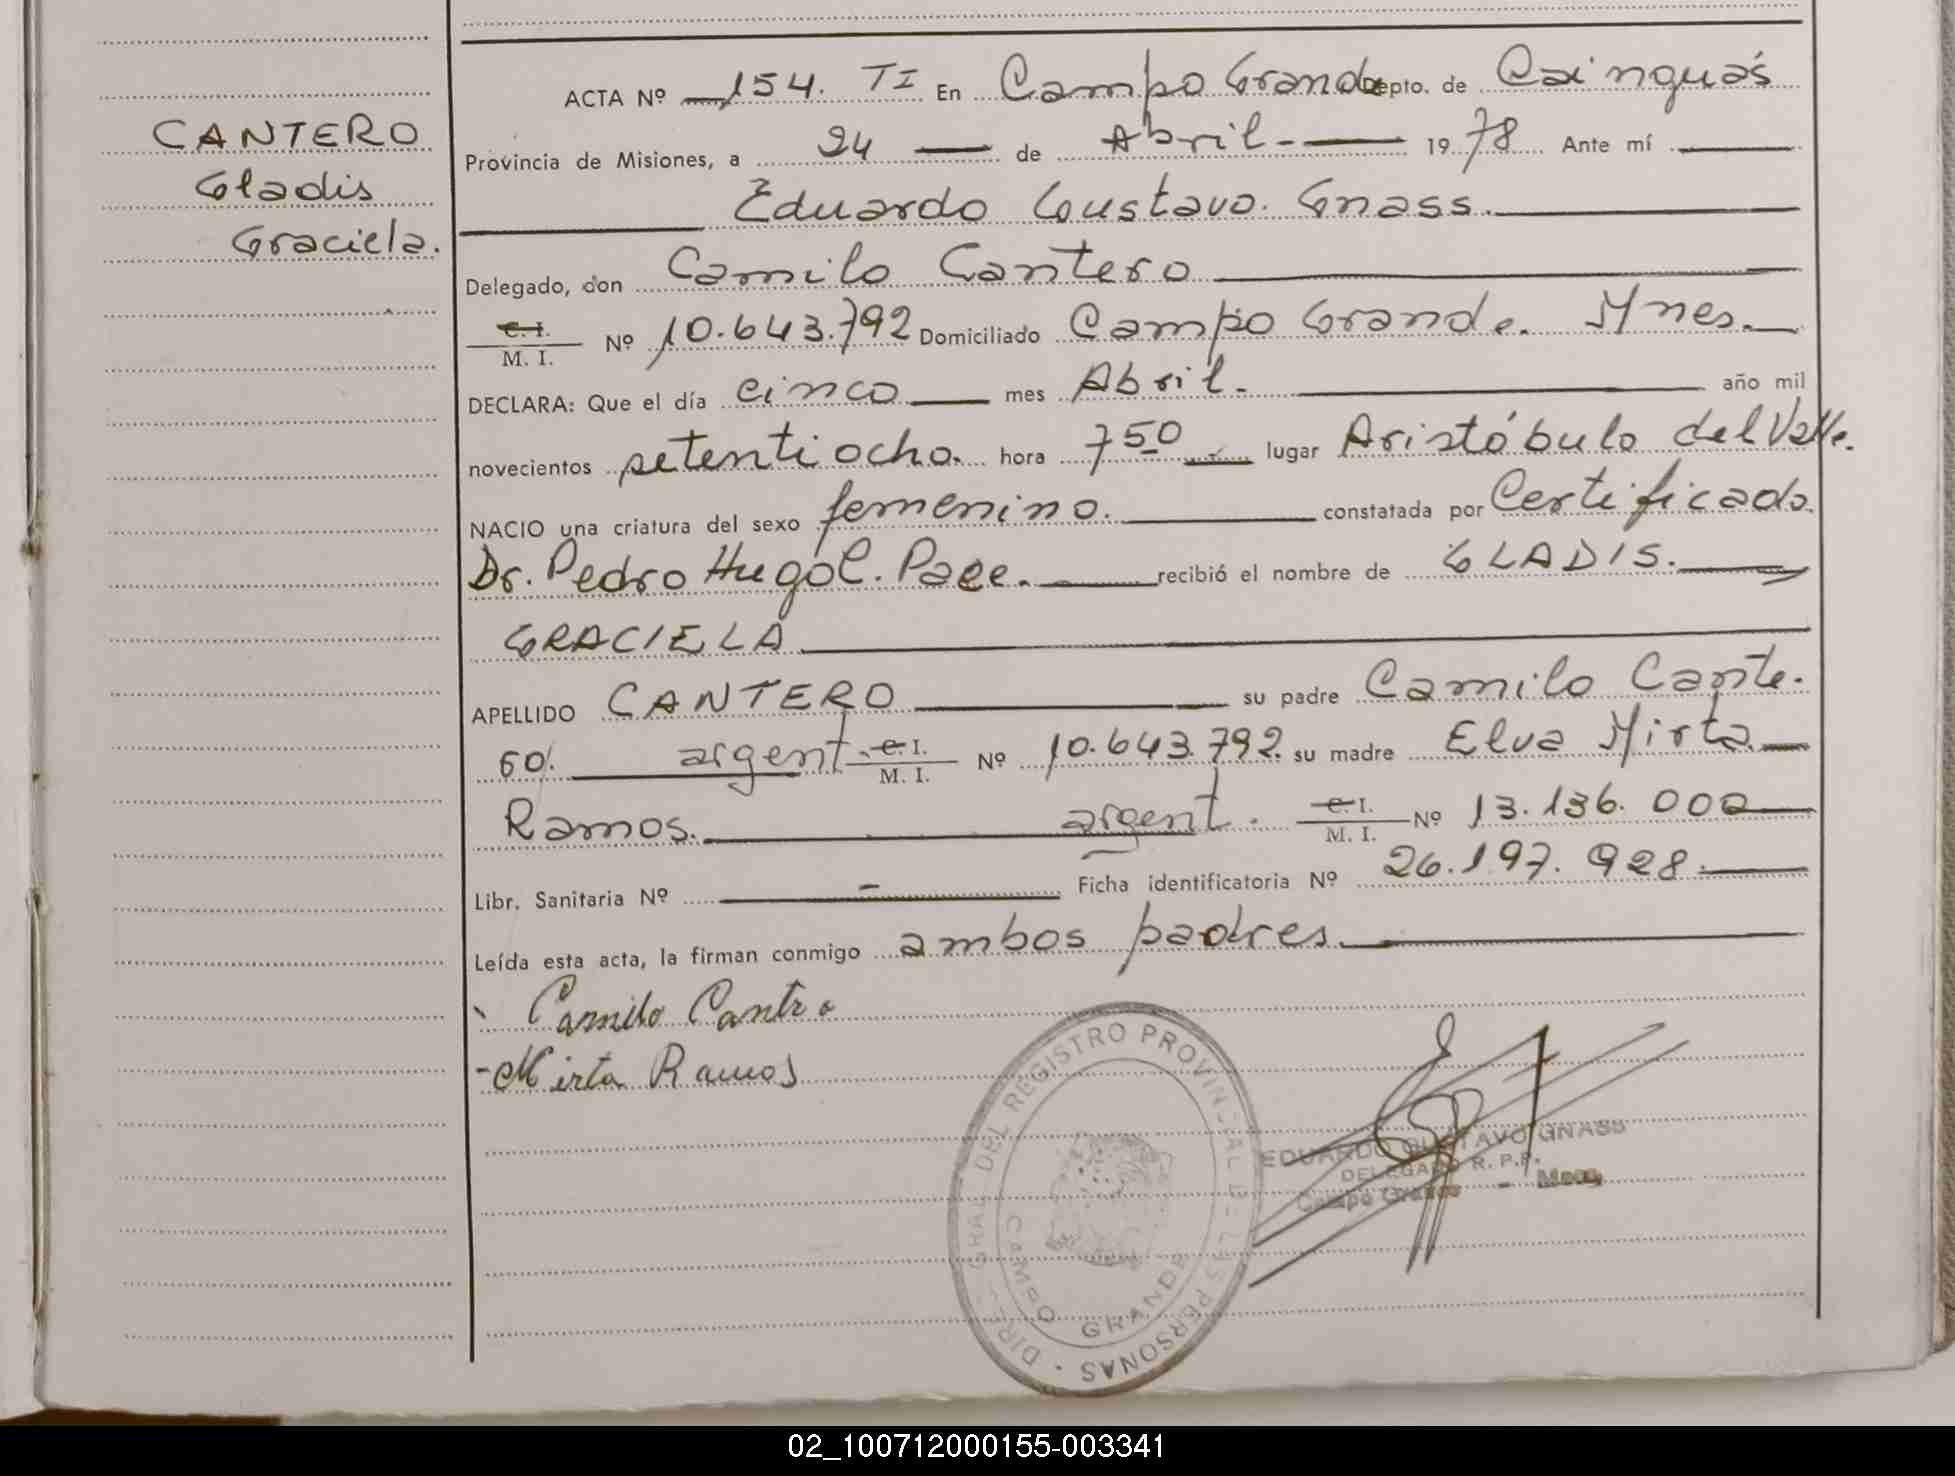 ACTA Nº 154. TI En Campo Grande Depto. de Cainguás
CANTERO
Provincia de Misiones, a 24 de Abril.- 1978 Ante mí
Gladis
Eduardo Gustavo. Gnass.
Graciela.
Delegado, don Camilo Cantero
C. I.
M. I. Nº 10.643.792 Domiciliado Campo Grande. Mnes.
DECLARA: Que el día cinco mes Abril. año mil
novecientos setentiocho. hora 7 50 lugar Aristóbulo del Valle.
NACIO una criatura del sexo femenino. constatada por Certificado
Dr. Pedro Hugo C. Pace. recibió el nombre de GLADIS.
GRACIELA
APELLIDO CANTERO su padre Camilo Cante.
argent. C. I.
M. I. Nº 10.643.792. su madre Elva Mirta
Ramos. argent. C. I.
M. I. Nº 13.136.000
Libr. Sanitaria Nº - Ficha identificatoria Nº 26.197.928.
Leída esta acta, la firman conmigo ambos padres.
Camilo Cantero
-Mirta Ramos
GRAL DEL REGISTRO PROVINCIAL DE LAS PERSONAS
CAMPO GRANDE
EDUARDO GUSTAVO GNASS
DELEGADO R. P. P.
Campo Grande - Mnes
02_100712000155-003341